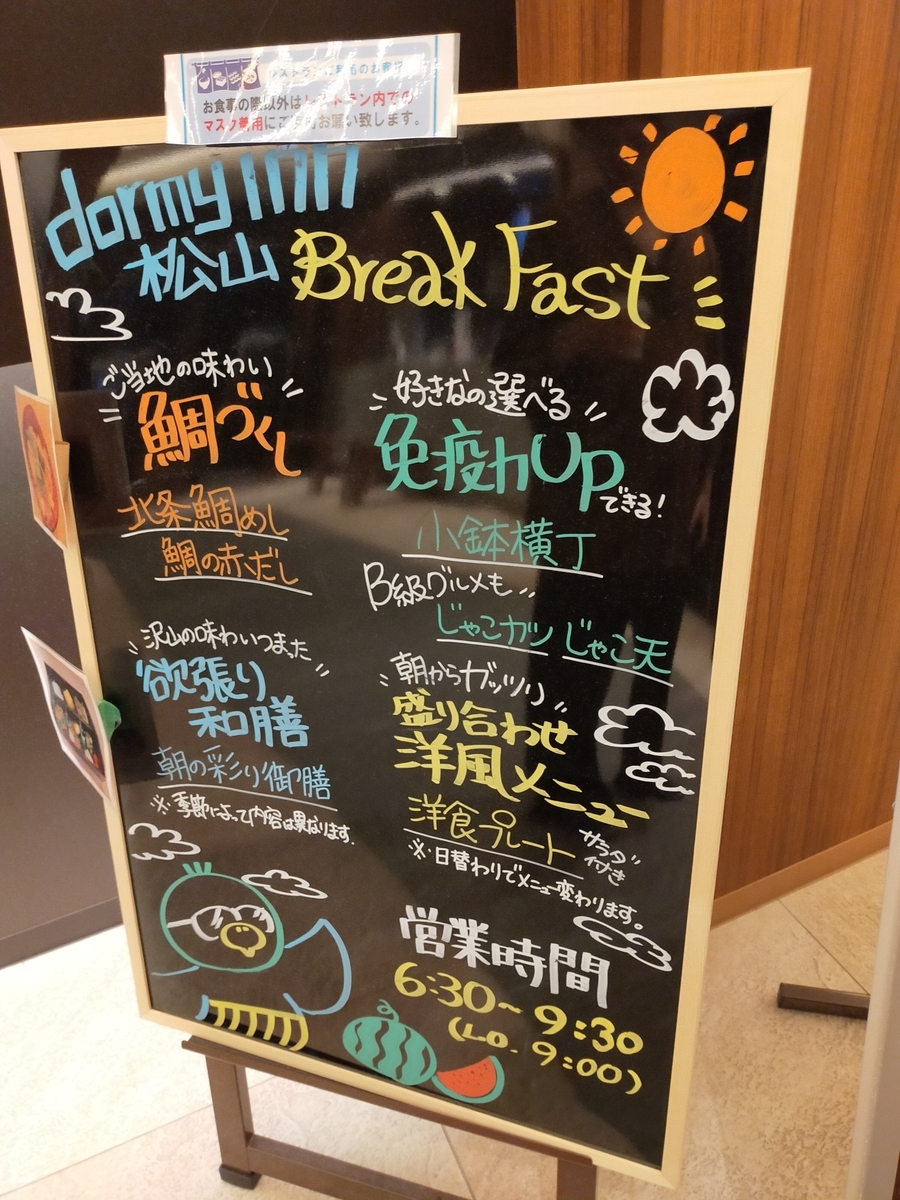 レストランに起着のお客様
お食事の際以外はレストラン内での
マスク着用にご協力お願い致します。
dormy inn
松山 BreakFast
ご当地の味わい
鯛づくし
北条鯛めし
鯛の赤だし
沢山の味わいつまった
欲張り
和膳
朝の彩り御膳
※季節によって内容は異なります.
好きなの選べる
免疫力Up
できる!
小鉢横丁
B級グルメも..
じゃこカツ じゃこ天
朝からガッツリ
盛り合わせ
洋風メニュー
洋食プレート サラダ付き
※日替わりでメニュー変わります。
営業時間
6:30~9:30
(L.O. 9:00)